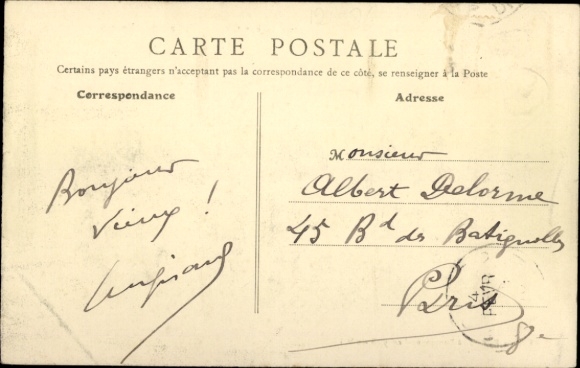 CARTE POSTALE
Certains pays étrangers n'acceptant pas la correspondance de ce côté, se renseigner à la Poste
Correspondance
Bonjour
vieux !
Adresse
Monsieur
Albert Delorme
45 Bd des Batignolles
Paris